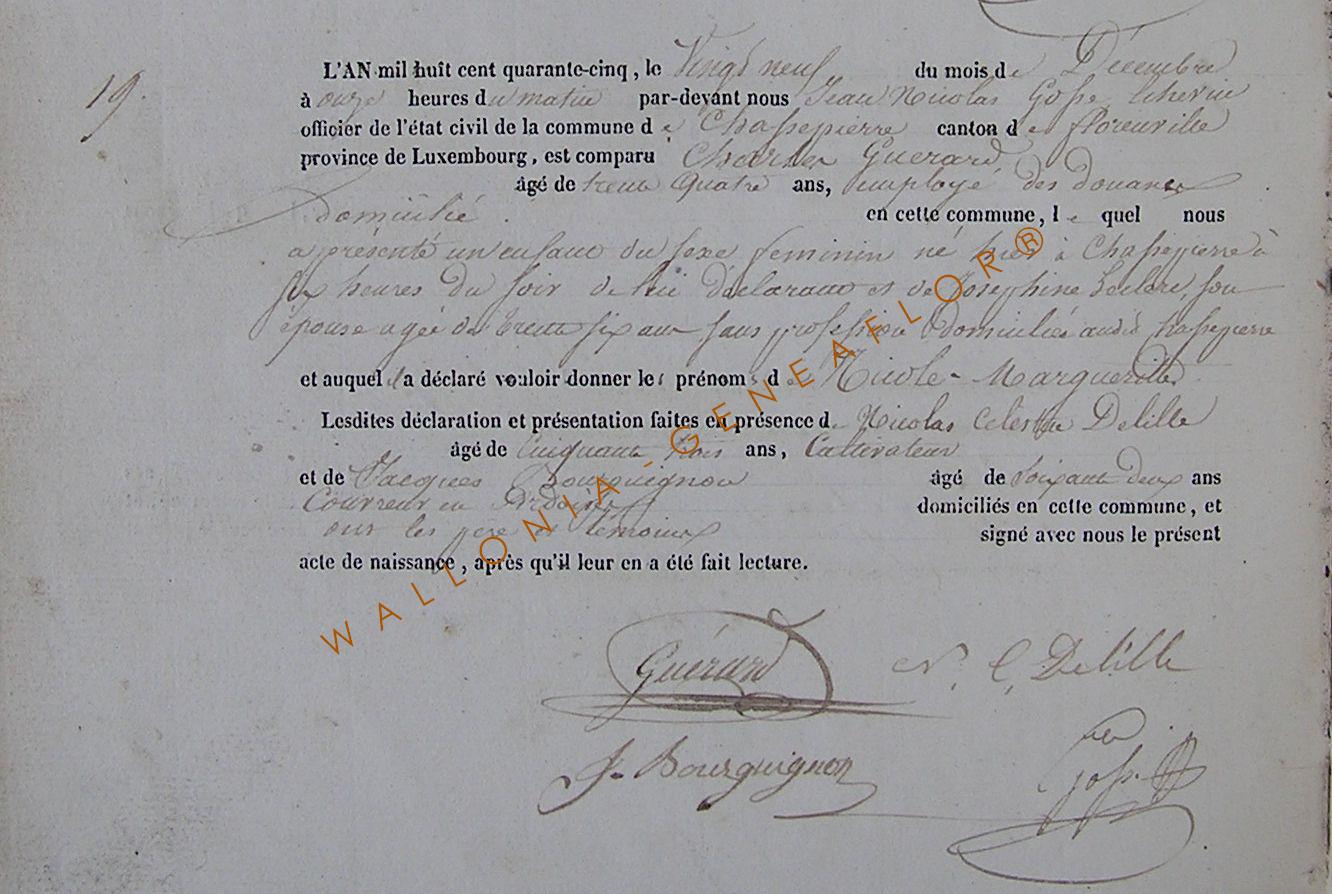 19.
L'AN mil huit cent quarante-cinq, le Vingt neuf du mois de Décembre
à onze heures du matin par-devant nous Jean Nicolas Gosse, échevin
officier de l'état civil de la commune de Chassepierre canton de florenville
province de Luxembourg, est comparu Charles Guerard
âgé de trente Quatre ans, employé des douanes
domicilié en cette commune, lequel nous
a présenté un enfant du sexe feminin né hier à Chassepierre à
six heures du soir de lui déclarant et de Josephine Leclere, son
épouse agée de trente six ans sans profession domiciliés audit chassepierre
et auquel il a déclaré vouloir donner les prénoms de Nicole-Margueritte
Lesdites déclaration et présentation faites en présence de Nicolas Celestin Delille
âgé de Cinquante trois ans, Cultivateur
et de Jacques Bourguignon âgé de soixante deux ans
Couvreur en Ardoises domiciliés en cette commune, et
ont les pere et témoins signé avec nous le présent
acte de naissance, après qu'il leur en a été fait lecture.
Guérard N. C. Delille
J. Bourguignon
Gosse
WALLONIA-GENEAFLOR®